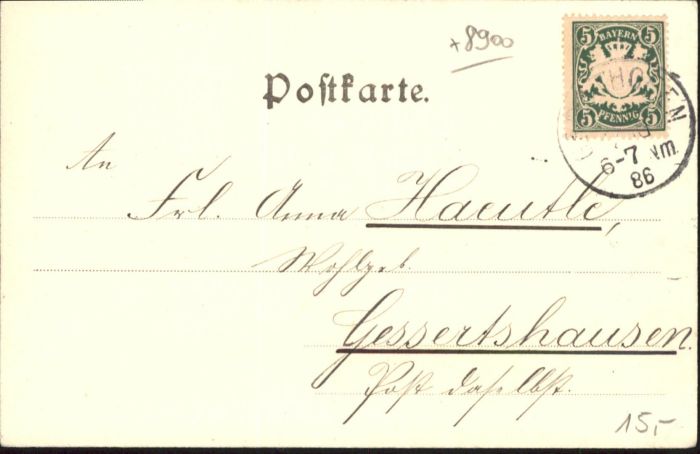 +8900
5 BAYERN 5
5 PFENNIG 5
Postkarte.
6-7 Nm.
86
An
Frl. Anna Haeutle,
Wohlgeb.
Gessertshausen.
Post daselbst.
15,-